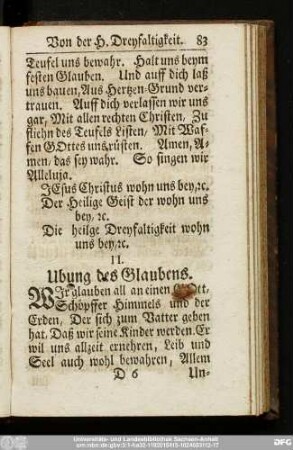 Von der H. Dreyfaltigkeit. 83
Teufel uns bewahr. Halt uns beym
festen Glauben. Und auff dich laß
uns bauen, Aus Hertzen-Grund ver-
trauen. Auff dich verlassen wir uns
gar, Mit allen rechten Christen, Zu
fliehn des Teufels Listen, Mit Waf-
fen GOttes uns rüsten. Amen, A-
men, das sey wahr. So singen wir
Alleluja.
JEsus Christus wohn uns bey, ꝛc.
Der Heilige Geist der wohn uns
bey, ꝛc.
Die heilge Dreyfaltigkeit wohn
uns bey, ꝛc.
II.
Ubung des Glaubens.
WIr glauben all an einen GOtt,
Schöpffer Himmels und der
Erden, Der sich zum Vatter geben
hat, Daß wir seine Kinder werden. Er
wil uns allzeit ernehren, Leib und
Seel auch wohl bewahren, Allem
D 6 Un-
Universitäts- und Landesbibliothek Sachsen-Anhalt